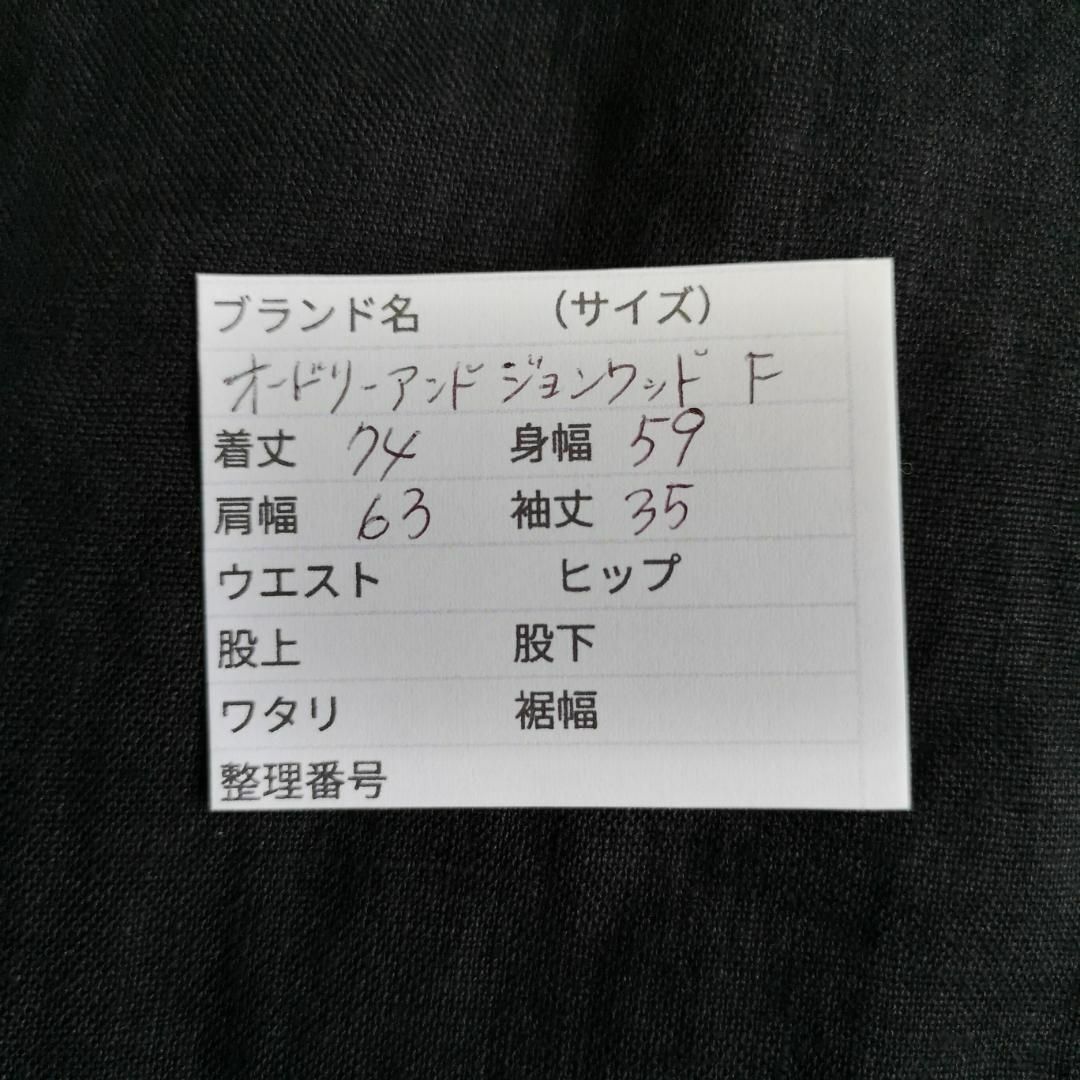 ブランド名 （サイズ）
オードリーアンド ジョンワッド F
着丈 74 身幅 59
肩幅 63 袖丈 35
ウエスト ヒップ
股上 股下
ワタリ 裾幅
整理番号